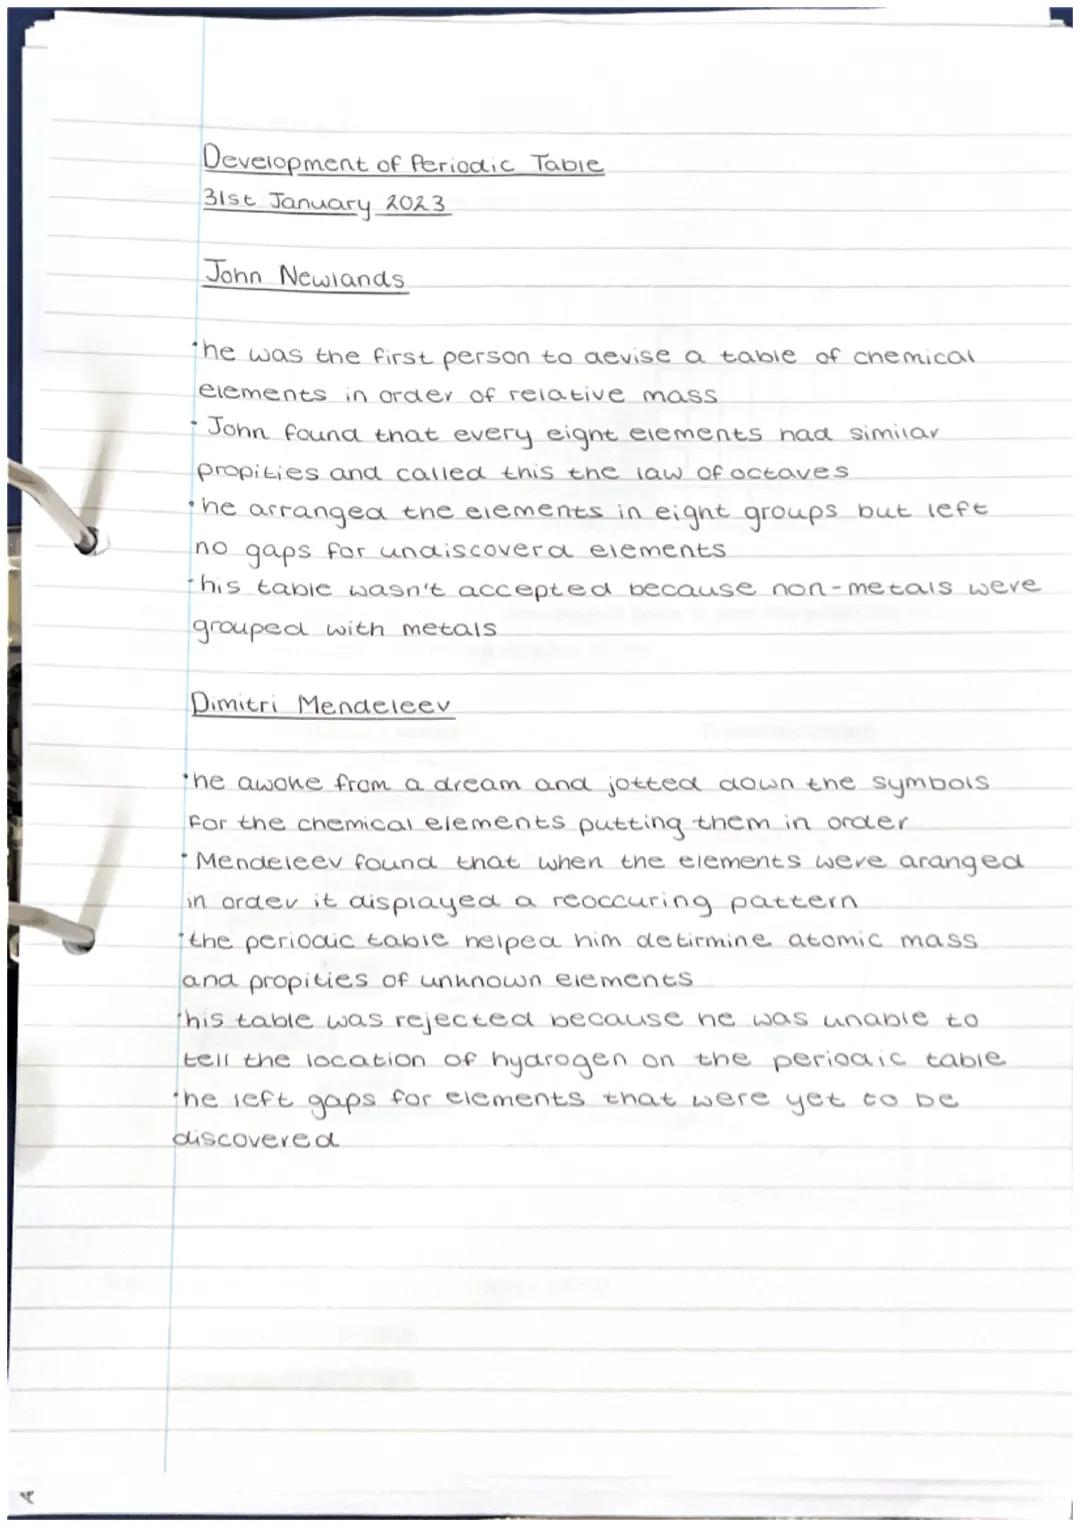 Development of Periodic Table
31st January 2023
John Newlands
•he was the first person to devise a table of chemical
elements in order of relative mass
•John found that every eight elements had similar
propities and called this the law of octaves
•he arranged the elements in eight groups but left
no gaps for undiscoverd elements
•his table wasn't accepted because non-metals were
grouped with metals
Dimitri Mendeleev
•he awoke from a dream and jotted down the symbols
for the chemical elements putting them in order
•Mendeleev found that when the elements were aranged
in order it displayed a reoccuring pattern
•the periodic table helped him detirmine atomic mass
and propities of unknown elements
•his table was rejected because he was unable to
tell the location of hydrogen on the periodic table
•he left gaps for elements that were yet to be
discovered